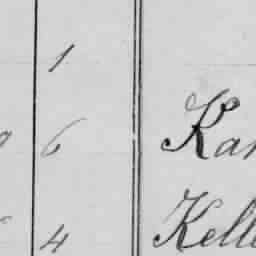 1
6 Kar
4 Kelle